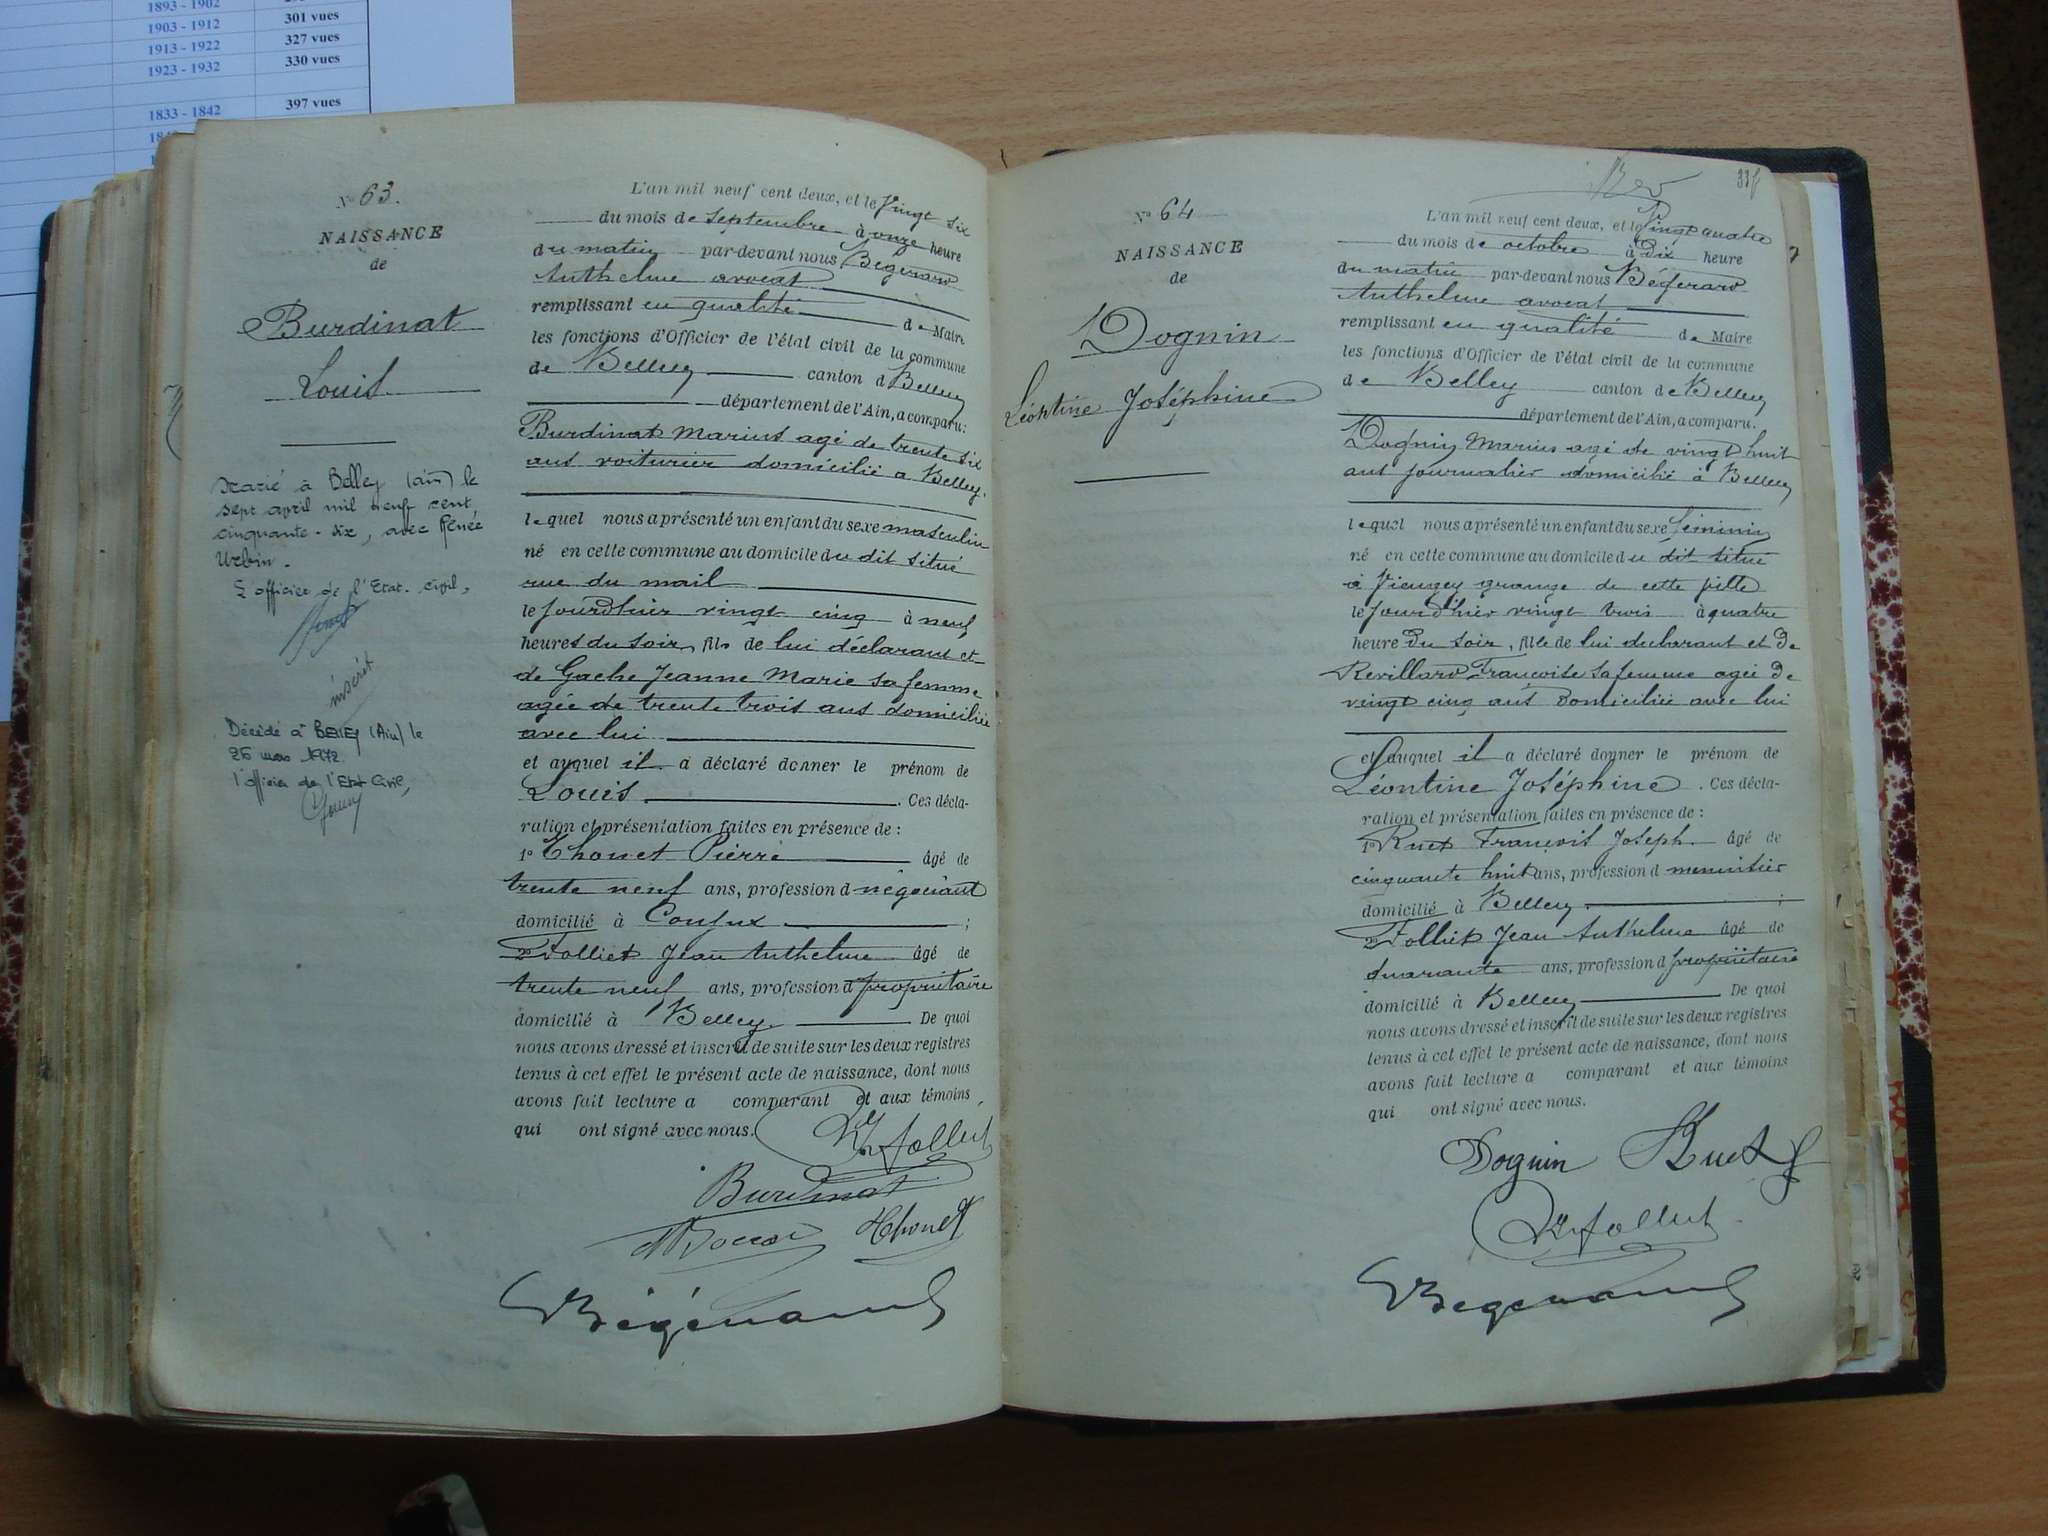 1893 - 1902
1903 - 1912 301 vues
1913 - 1922 327 vues
1923 - 1932 330 vues
1833 - 1842 397 vues
N° 63.
NAISSANCE
de
Burdinat
Louis
Marié à Belley (ain) le
sept avril mil neuf cent
cinquante-dix, avec Renée
Urbin.
L'officier de l'Etat. civil,
inscrit
Décédé à BELLEY (Ain) le
26 mars 1972
l'officier de l'Etat Civil,
L'an mil neuf cent deux, et le Vingt six
du mois de septembre à onze heure
du matin par-devant nous Bégerard
Anthelme avocat
remplissant en qualité de Maire
les fonctions d'Officier de l'état civil de la commune
de Belley canton d Belley
département de l'Ain, a comparu:
Burdinat Marius agé de trente six
ans voiturier domicilié a Belley.
lequel nous a présenté un enfant du sexe masculin
né en cette commune au domicile du dit situé
rue du mail
le jourd'hier vingt cinq à neuf
heures du soir, fils de lui déclarant et
de Gache Jeanne Marie sa femme
agée de trente trois ans domiciliée
avec lui
et auquel il a déclaré donner le prénom de
Louis. Ces décla-
ration et présentation faites en présence de :
1° Thouet Pierre âgé de
trente neuf ans, profession d négociant
domicilié à Conjux ;
2° Folliet Jean Anthelme âgé de
trente neuf ans, profession d propriétaire
domicilié à Belley De quoi
nous avons dressé et inscrit de suite sur les deux registres
tenus à cet effet le présent acte de naissance, dont nous
avons fait lecture a comparant et aux témoins,
qui ont signé avec nous.
Folliet
Burdinat
Thouet
Bégerard
N° 64
NAISSANCE
de
Dognin
Léontine Joséphine
L'an mil neuf cent deux, et le Vingt quatre
du mois de octobre à Dix heure
du matin par-devant nous Bégerard
Anthelme avocat
remplissant en qualité de Maire
les fonctions d'Officier de l'état civil de la commune
de Belley canton de Belley
département de l'Ain, a comparu.
Dognin Marius agé de vingt huit
ans journalier domicilié à Belley
lequel nous a présenté un enfant du sexe féminin
né en cette commune au domicile du dit situé
à grange de cette ville
le jourd'hier vingt trois à quatre
heure du soir, fille de lui declarant et de
Revillard Françoise sa femme agée de
vingt cinq ans domiciliée avec lui
et auquel il a déclaré donner le prénom de
Léontine Joséphine. Ces décla-
ration et présentation faites en présence de :
1° Ruet François Joseph âgé de
cinquante huit ans, profession d menuisier
domicilié à Belley ;
2° Folliet Jean Anthelme âgé de
quarante ans, profession d propriétaire
domicilié à Belley De quoi
nous avons dressé et inscrit de suite sur les deux registres
tenus à cet effet le présent acte de naissance, dont nous
avons fait lecture a comparant et aux témoins
qui ont signé avec nous.
Dognin Ruet
Folliet
Bégerard